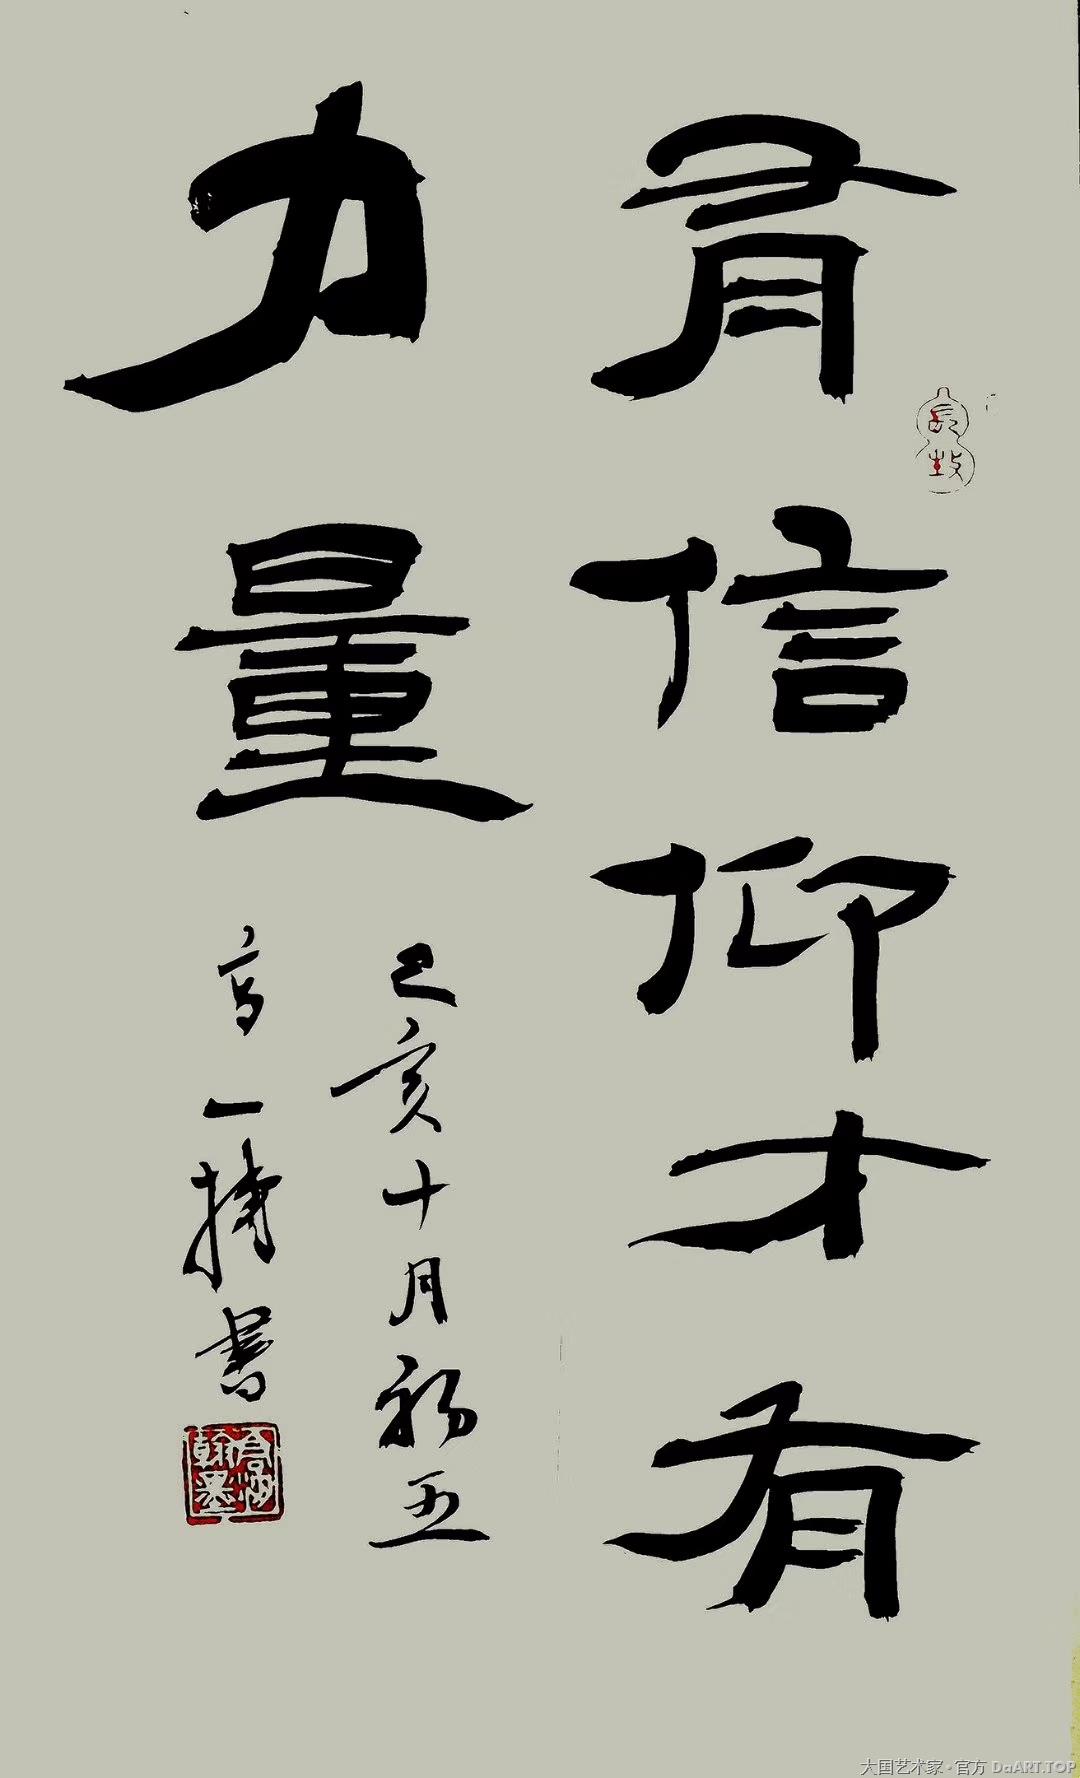 有信仰才有
力量
己亥十月初五
高一捷书
大国艺术家·官方 DaART.TOP